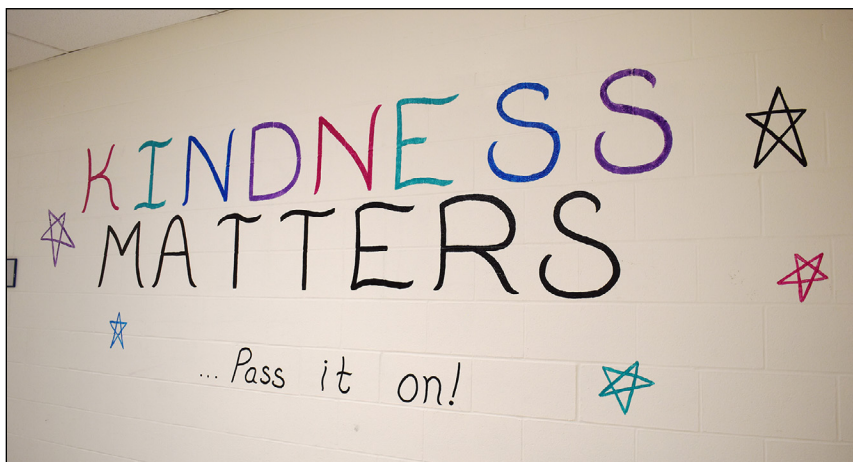 KINDNESS
MATTERS
... Pass it on!